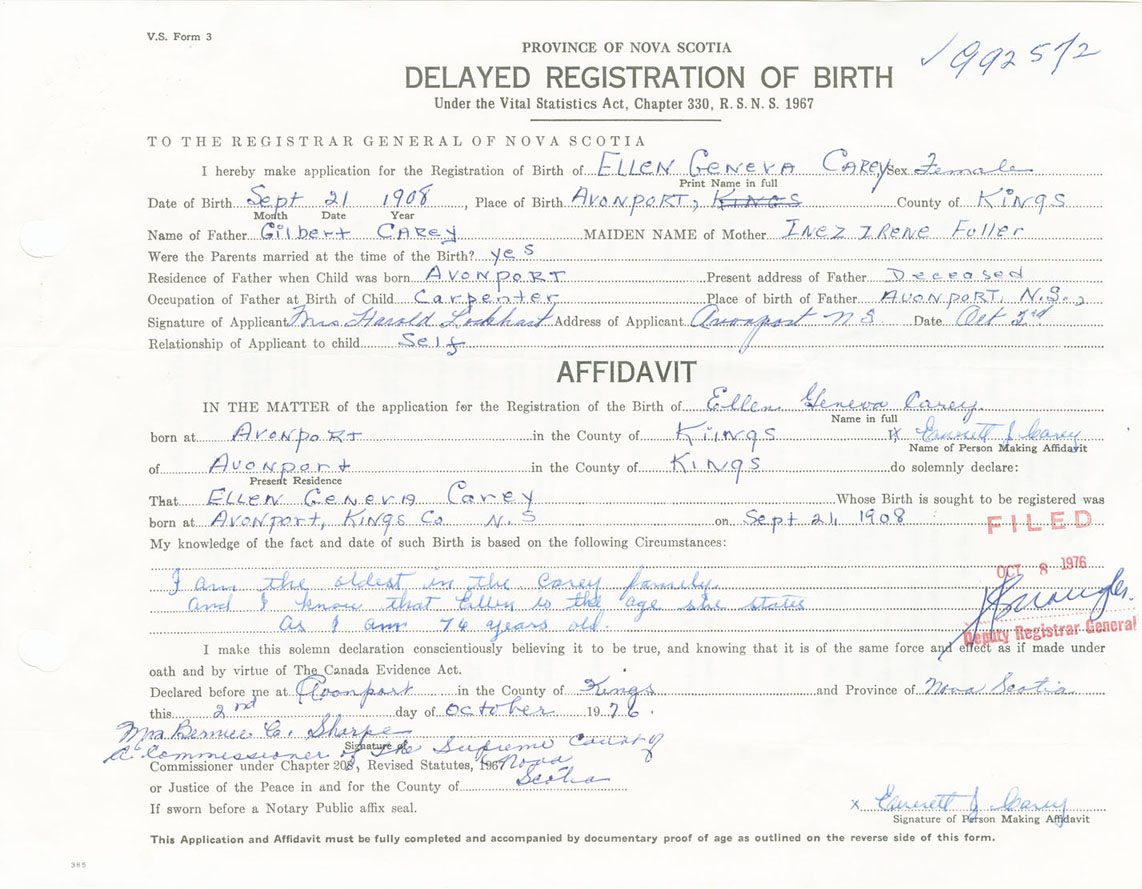 V.S. Form 3
PROVINCE OF NOVA SCOTIA
✓992572
DELAYED REGISTRATION OF BIRTH
Under the Vital Statistics Act, Chapter 330, R.S.N.S. 1967
TO THE REGISTRAR GENERAL OF NOVA SCOTIA
I hereby make application for the Registration of Birth of ELLEN GENEVA CAREY, Sex Female
Print Name in full
Date of Birth Sept 21 1908, Place of Birth AVONPORT, KINGS County of KINGS
Month Date Year
Name of Father Gilbert CAREY MAIDEN NAME of Mother INEZ IRENE Fuller
Were the Parents married at the time of the Birth? yes
Residence of Father when Child was born AVONPORT Present address of Father Deceased
Occupation of Father at Birth of Child Carpenter Place of birth of Father AVONPORT, N.S.,
Signature of Applicant Mrs Harold Lockhart Address of Applicant Avonport N S Date Oct 2rd
Relationship of Applicant to child Self
AFFIDAVIT
IN THE MATTER of the application for the Registration of the Birth of Ellen Geneva Carey
Name in full
born at AVONPORT in the County of KiINGS I x Emmett J Carey
Name of Person Making Affidavit
of AVONPORT in the County of KINGS do solemnly declare:
Present Residence
That ELLEN GENEVA Carey Whose Birth is sought to be registered was
born at AVONPORT, KINGS Co N.S on Sept 21, 1908
FILED
My knowledge of the fact and date of such Birth is based on the following Circumstances:
OCT 8 1976
I am the oldest in the Carey family
and I know that Ellen is the age she states
As I am 76 years old.
Deputy Registrar General
I make this solemn declaration conscientiously believing it to be true, and knowing that it is of the same force and effect as if made under
oath and by virtue of The Canada Evidence Act.
Declared before me at Avonport in the County of Kings and Province of Nova Scotia
this 2nd day of October 1976.
Mrs Bernice C. Sharpe
A Commissioner of The Supreme Court of
Signature of
Commissioner under Chapter 208, Revised Statutes, 1967 Nova
or Justice of the Peace in and for the County of Scotia
If sworn before a Notary Public affix seal.
x Emmett J Carey
Signature of Person Making Affidavit
This Application and Affidavit must be fully completed and accompanied by documentary proof of age as outlined on the reverse side of this form.
385